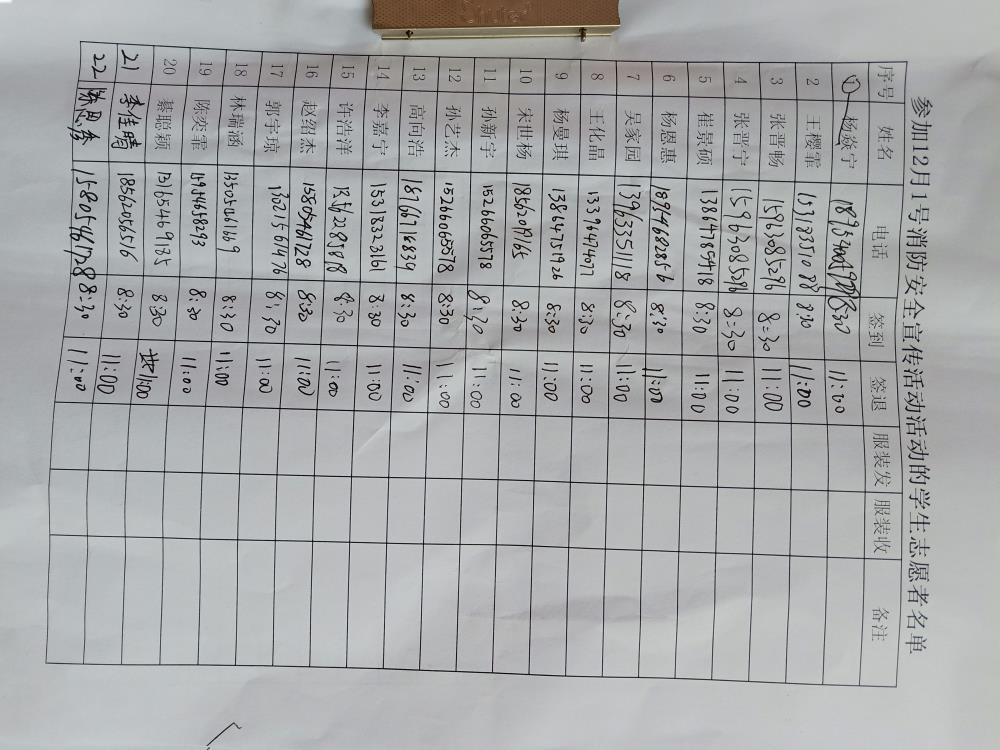 参加12月1号消防安全宣传活动活动的学生志愿者名单
序号 姓名 电话 签到 签退 服装发 服装收 备注
1 杨焱宁 8:30 11:00
2 王樱霏 8:30 11:00
3 张晋畅 15963085296 8:30 11:00
4 张晋宁 15963085296 8:30 11:00
5 崔景硕 13864785418 8:30 11:00
6 杨恩惠 18954682856 8:30 11:00
7 吴家园 13963351118 8:30 11:00
8 王化晶 13396474077 8:30 11:00
9 杨曼琪 13864751926 8:30 11:00
10 宋世杨 8:30 11:00
11 孙新宇 15266065578 8:30 11:00
12 孙艺杰 15266065578 8:30 11:00
13 高向浩 18766716339 8:30 11:00
14 李嘉宁 15318323161 8:30 11:00
15 许浩洋 8:30 11:00
16 赵绍杰 15805461728 8:30 11:00
17 郭宇琼 13021566476 8:30 11:00
18 林瑞涵 13505461669 8:30 11:00
19 陈奕霏 15944658293 8:30 11:00
20 綦聪颖 13165469135 8:30 11:00
21 李佳晴 18562065656 8:30 11:00
22 15805461728 8:30 11:00